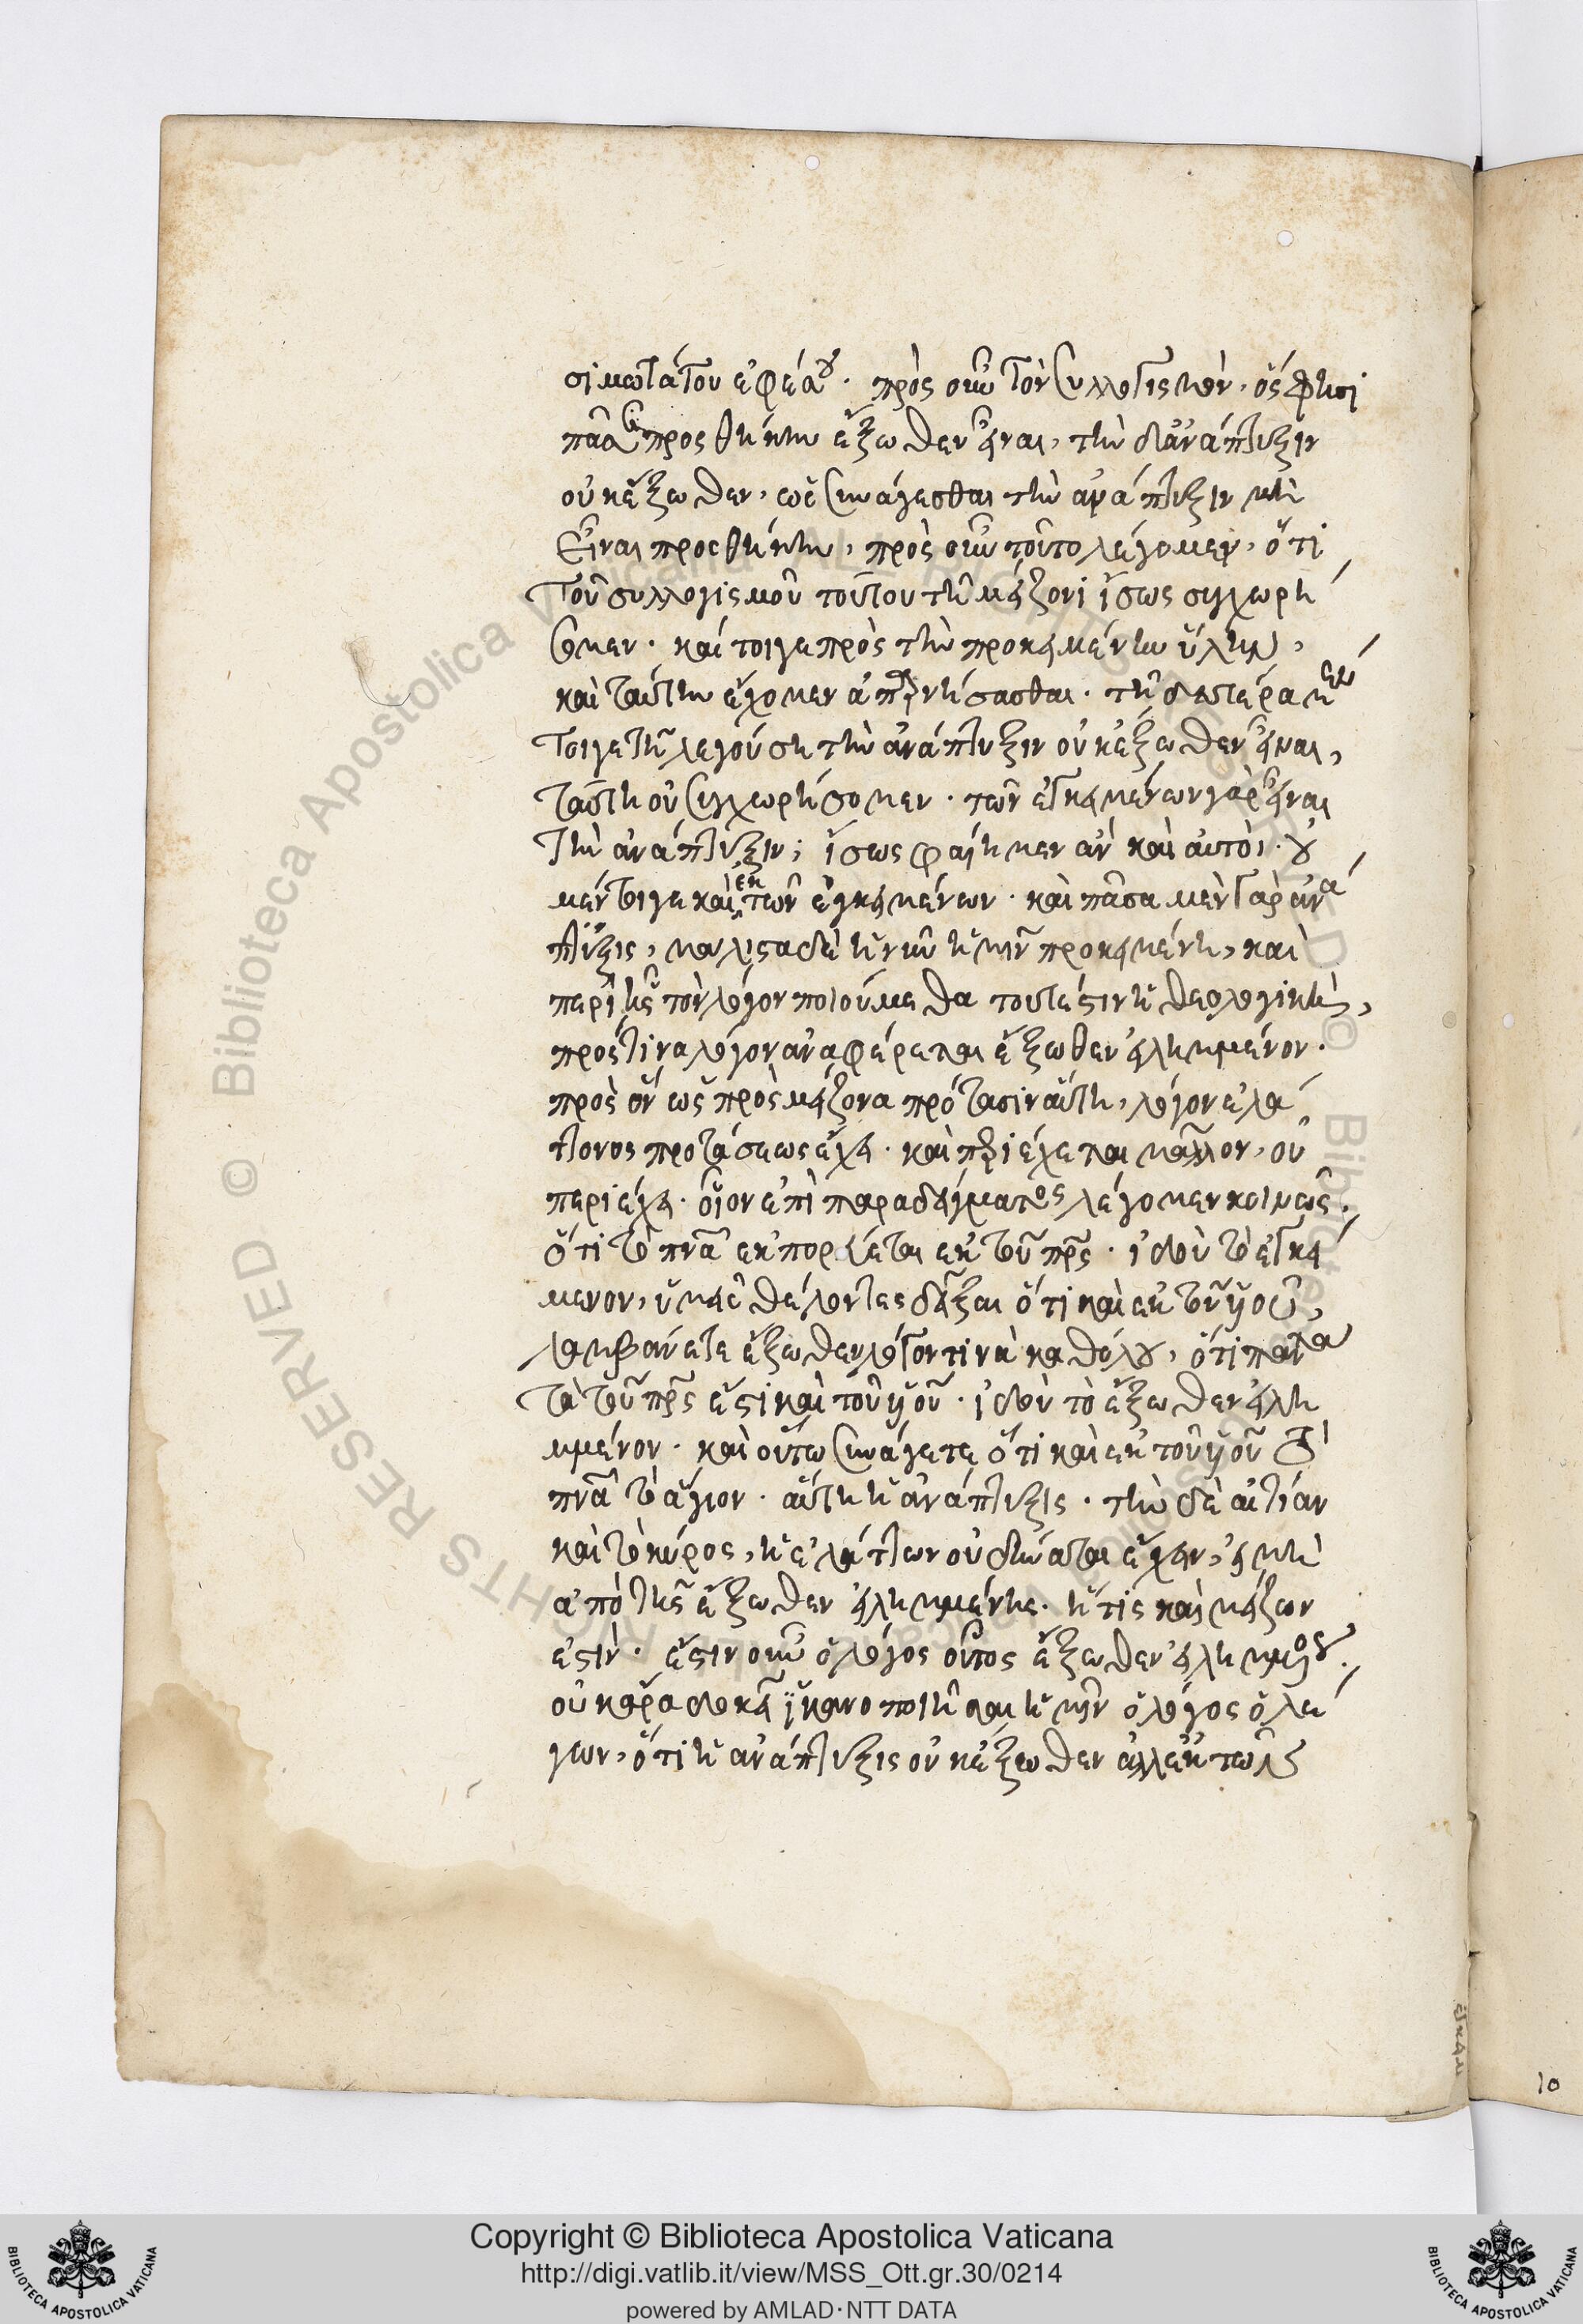 σιμωτάτου ἐφέσου. πρὸς οὖν τὸν συλλογισμὸν, ὅς φησι
πᾶσαν προσθήκην ἔξωθεν εἶναι, τὴν δ' ἀνάπτυξιν
οὐκ ἔξωθεν, ὡς συνάγεσθαι τὴν ἀνάπτυξιν μὴ
εἶναι προσθήκην, πρὸς οὖν τοῦτο λέγομεν, ὅτι
τοῦ συλλογισμοῦ τούτου τῇ μείζονι ἴσως συγχωρή
σομεν. καί τοιγε πρὸς τὴν προκειμένην ὕλην,
καὶ ταύτην ἔχομεν ἀπαρνήσασθαι. τῇ δευτέρα μέν
τοιγε τῇ λεγούση τὴν ἀνάπτυξιν οὐκ ἔξωθεν εἶναι,
ταύτη οὐ συγχωρήσομεν. τῶν ἐγκειμένων γὰρ εἶναι
τὴν ἀνάπτυξιν, ἴσως φαίημεν ἂν καὶ αὐτοὶ. οὐ
μέντοιγε καὶ ἐκ τῶν ἐγκειμένων. καὶ πᾶσα μὲν γὰρ ἀνά
πτυξις, μάλιστα δὲ ἡ νῦν ἡμῖν προκειμένη, καὶ
περὶ ἧς τὸν λόγον ποιούμεθα τουτέστιν ἡ θεολογικὴ,
πρός τινα λόγον ἀναφέρεται ἔξωθεν εἰλημμένον.
πρὸς ὃν ὡς πρὸς μείζονα πρότασιν αὕτη, λόγον ἐλά
ττονος προτάσεως ἔχει. καὶ περιέχεται μᾶλλον, οὐ
περιέχει. οἷον ἐπὶ παραδείγματος λέγομεν κοινῶς.
ὅτι τὸ πνα ἐκπορεύεται ἐκ τοῦ πρς. ἰδοὺ τὸ ἐγκεί
μενον, ὑμεῖς θέλοντες δεῖξαι ὅτι καὶ ἐκ τοῦ υἱοῦ,
λαμβάνετε ἔξωθεν λόγον τινὰ καθόλου, ὅτι πάντα
τὰ τοῦ πρς ἔστι καὶ τοῦ υἱοῦ. ἰδοὺ τὸ ἔξωθεν εἰλη
μμένον. καὶ οὕτω συνάγετε ὅτι καὶ ἐκ τοῦ υἱοῦ τὸ
πνα τὸ ἅγιον. αὕτη ἡ ἀνάπτυξις. τὴν δὲ αἰτίαν
καὶ τὸ κύρος, ἡ ἐλάττων οὐ δύναται ἔχειν, εἰ μὴ
ἀπὸ τῆς ἔξωθεν εἰλημμένης. ἥτις καὶ μείζων
ἐστίν. ἔστιν οὖν ὁ λόγος οὗτος ἔξωθεν εἰλημμένος.
οὐκ ἄρα δοκεῖ ἱκανοποιῆσαι ἡμῖν ὁ λόγος ὁ λέ
γων, ὅτι ἡ ἀνάπτυξις οὐκ ἔξωθεν ἀλλ' ἐκ τῶν
10
Copyright © Biblioteca Apostolica Vaticana
http://digi.vatlib.it/view/MSS_Ott.gr.30/0214
powered by AMLAD·NTT DATA